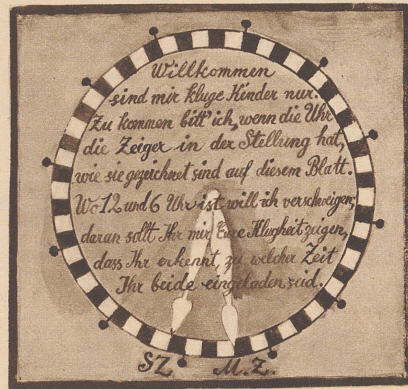 Willkommen
sind mir kluge Kinder nur.
Zu kommen bitt' ich, wenn die Uhr
die Zeiger in der Stellung hat,
wie sie gezeichnet sind auf diesem Blatt.
Wo 12 und 6 Uhr ist, will ich verschweigen;
daran sollt Ihr mir Eure Klugheit zeigen,
dass Ihr erkennt, zu welcher Zeit
Ihr beide eingeladen seid.
SZ. M.Z.